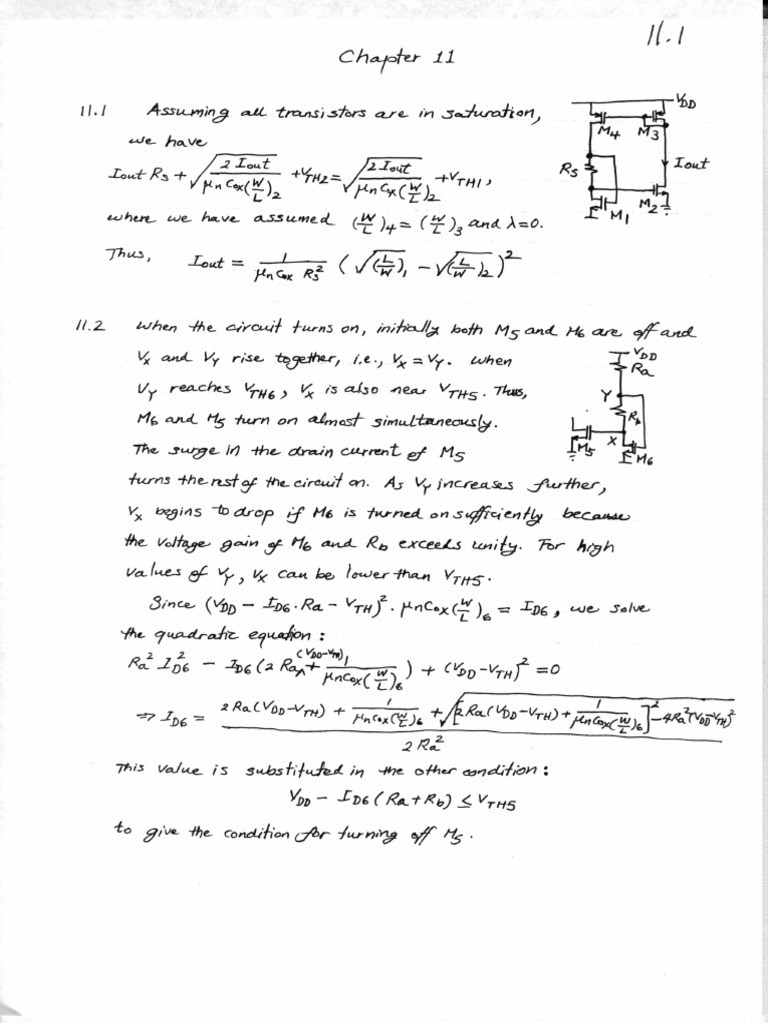 11.1
Chapter 11
11.1 Assuming all transistors are in saturation,
we have
Iout Rs + √(2 Iout / μn Cox (W/L)2) + VTH2 = √(2 Iout / μn Cox (W/L)2) + VTH1,
where we have assumed (W/L)4 = (W/L)3 and λ=0.
Thus, Iout = 1 / (μn Cox Rs²) (√(L/W)1 − √(L/W)2)²
VDD
M4 M3
Rs Iout
M1 M2
11.2 When the circuit turns on, initially both M5 and M6 are off and
Vx and VY rise together, i.e., Vx = VY. When
VY reaches VTH6, Vx is also near VTH5. Thus,
M6 and M5 turn on almost simultaneously.
The surge in the drain current of M5
turns the rest of the circuit on. As VY increases further,
Vx begins to drop if M6 is turned on sufficiently because
the voltage gain of M6 and Rb exceeds unity. For high
values of VY, Vx can be lower than VTH5.
VDD
Ra
Y
Rb
X
M5 M6
Since (VDD − ID6·Ra − VTH)²·μnCox(W/L)6 = ID6, we solve
the quadratic equation:
Ra² ID6² − ID6 (2 Ra (VDD−VTH) + 1 / μnCox(W/L)6) + (VDD−VTH)² = 0
⇒ ID6 = (2 Ra(VDD−VTH) + 1 / μnCox(W/L)6 + √([2Ra(VDD−VTH) + 1 / μnCox(W/L)6]² − 4Ra²(VDD−VTH)²)) / 2 Ra²
This value is substituted in the other condition:
VDD − ID6 (Ra+Rb) ≤ VTH5
to give the condition for turning off M5.